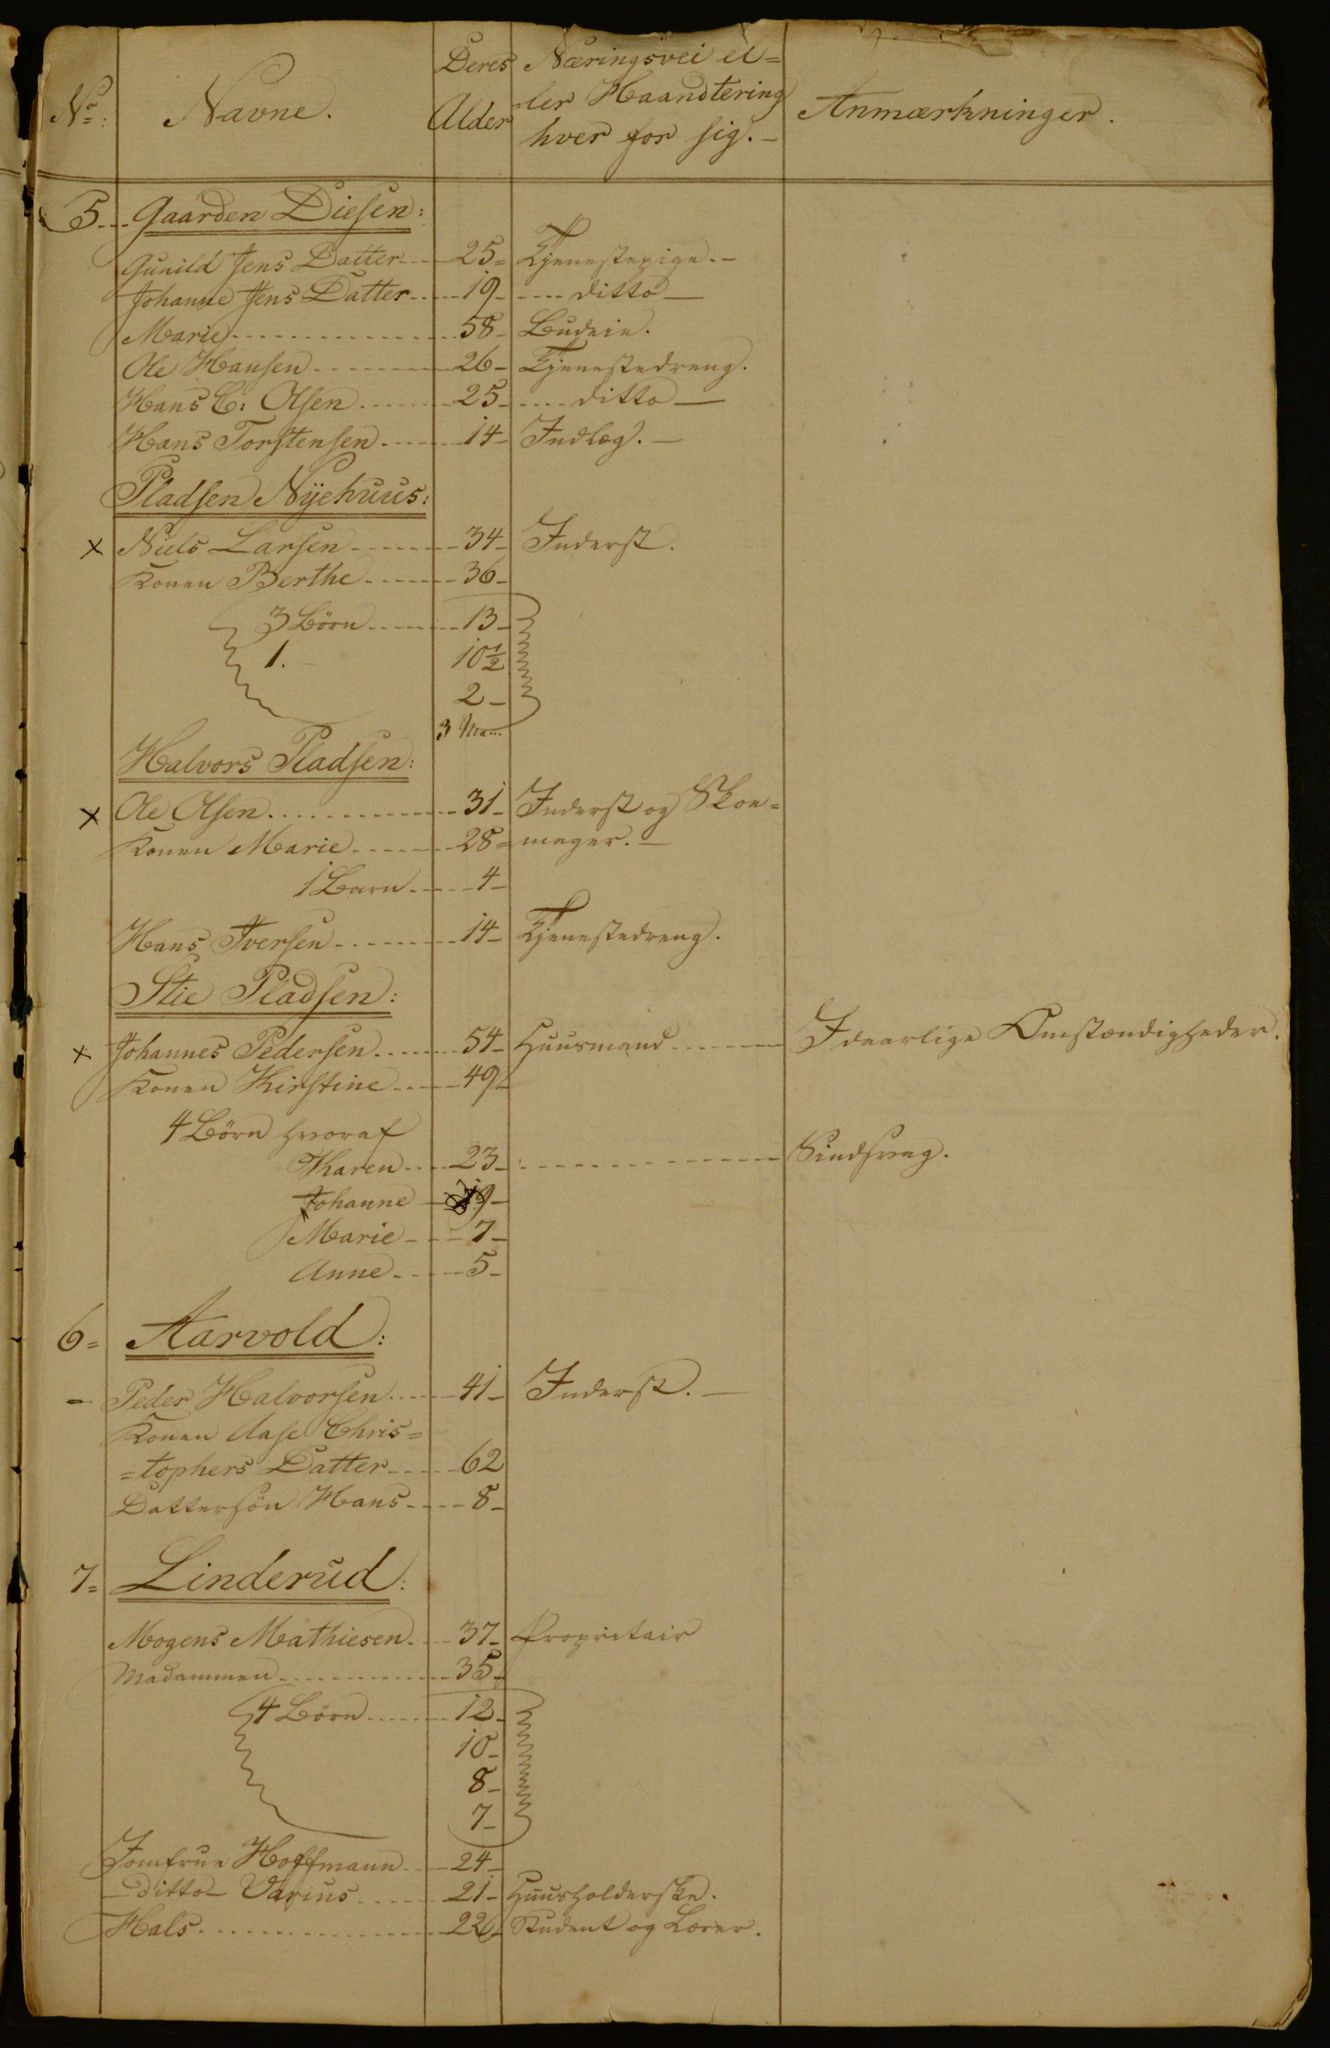 No: Navne. Deres Alder Næringsvei el=
=ler Haandtering
hver for sig. Anmærkninger.
5. Gaarden Diesen:
Gunild Jens Datter 25 Tjenestepige.
Johanne Jens Datter 19 ditto
Marie 58 Budeie.
Ole Hansen 26 Tjenestedreng.
Hans C: Olsen 25 ditto
Hans Torstensen 14 Indlæg.
Pladsen Nÿehuus:
x Niels Larsen 34 Inderst.
Konen Berthe 36
3 Börn 13
1. 10 1/2
2
3 Man.
Halvors Pladsen:
x Ole Olsen 31 Inderst og Skoe=
Konen Marie 28 =mager.
1 Barn 4
Hans Iversen 14 Tjenestedreng.
Stie Pladsen:
x Johannes Pedersen 54 Huusmand I daarlige Omstændigheder.
Konen Kirstine 49
4 Börn hvoraf
Karen 23 Sindsvag.
Johanne 19
Marie 7
Anne 5
6= Aarvold:
- Peder Halvorsen 41 Inderst.
Konen Aase Chris=
=tophers Datter 62
Dattersön Hans 8
7= Linderud:
Mogens Mathiesen 37 Proprietair
Madammen 35
4 Börn 12
10
8
7
Jomfrue Hoffmann 24
ditto Varius 21 Huusholderske.
Hals 22 Student og Lærer.